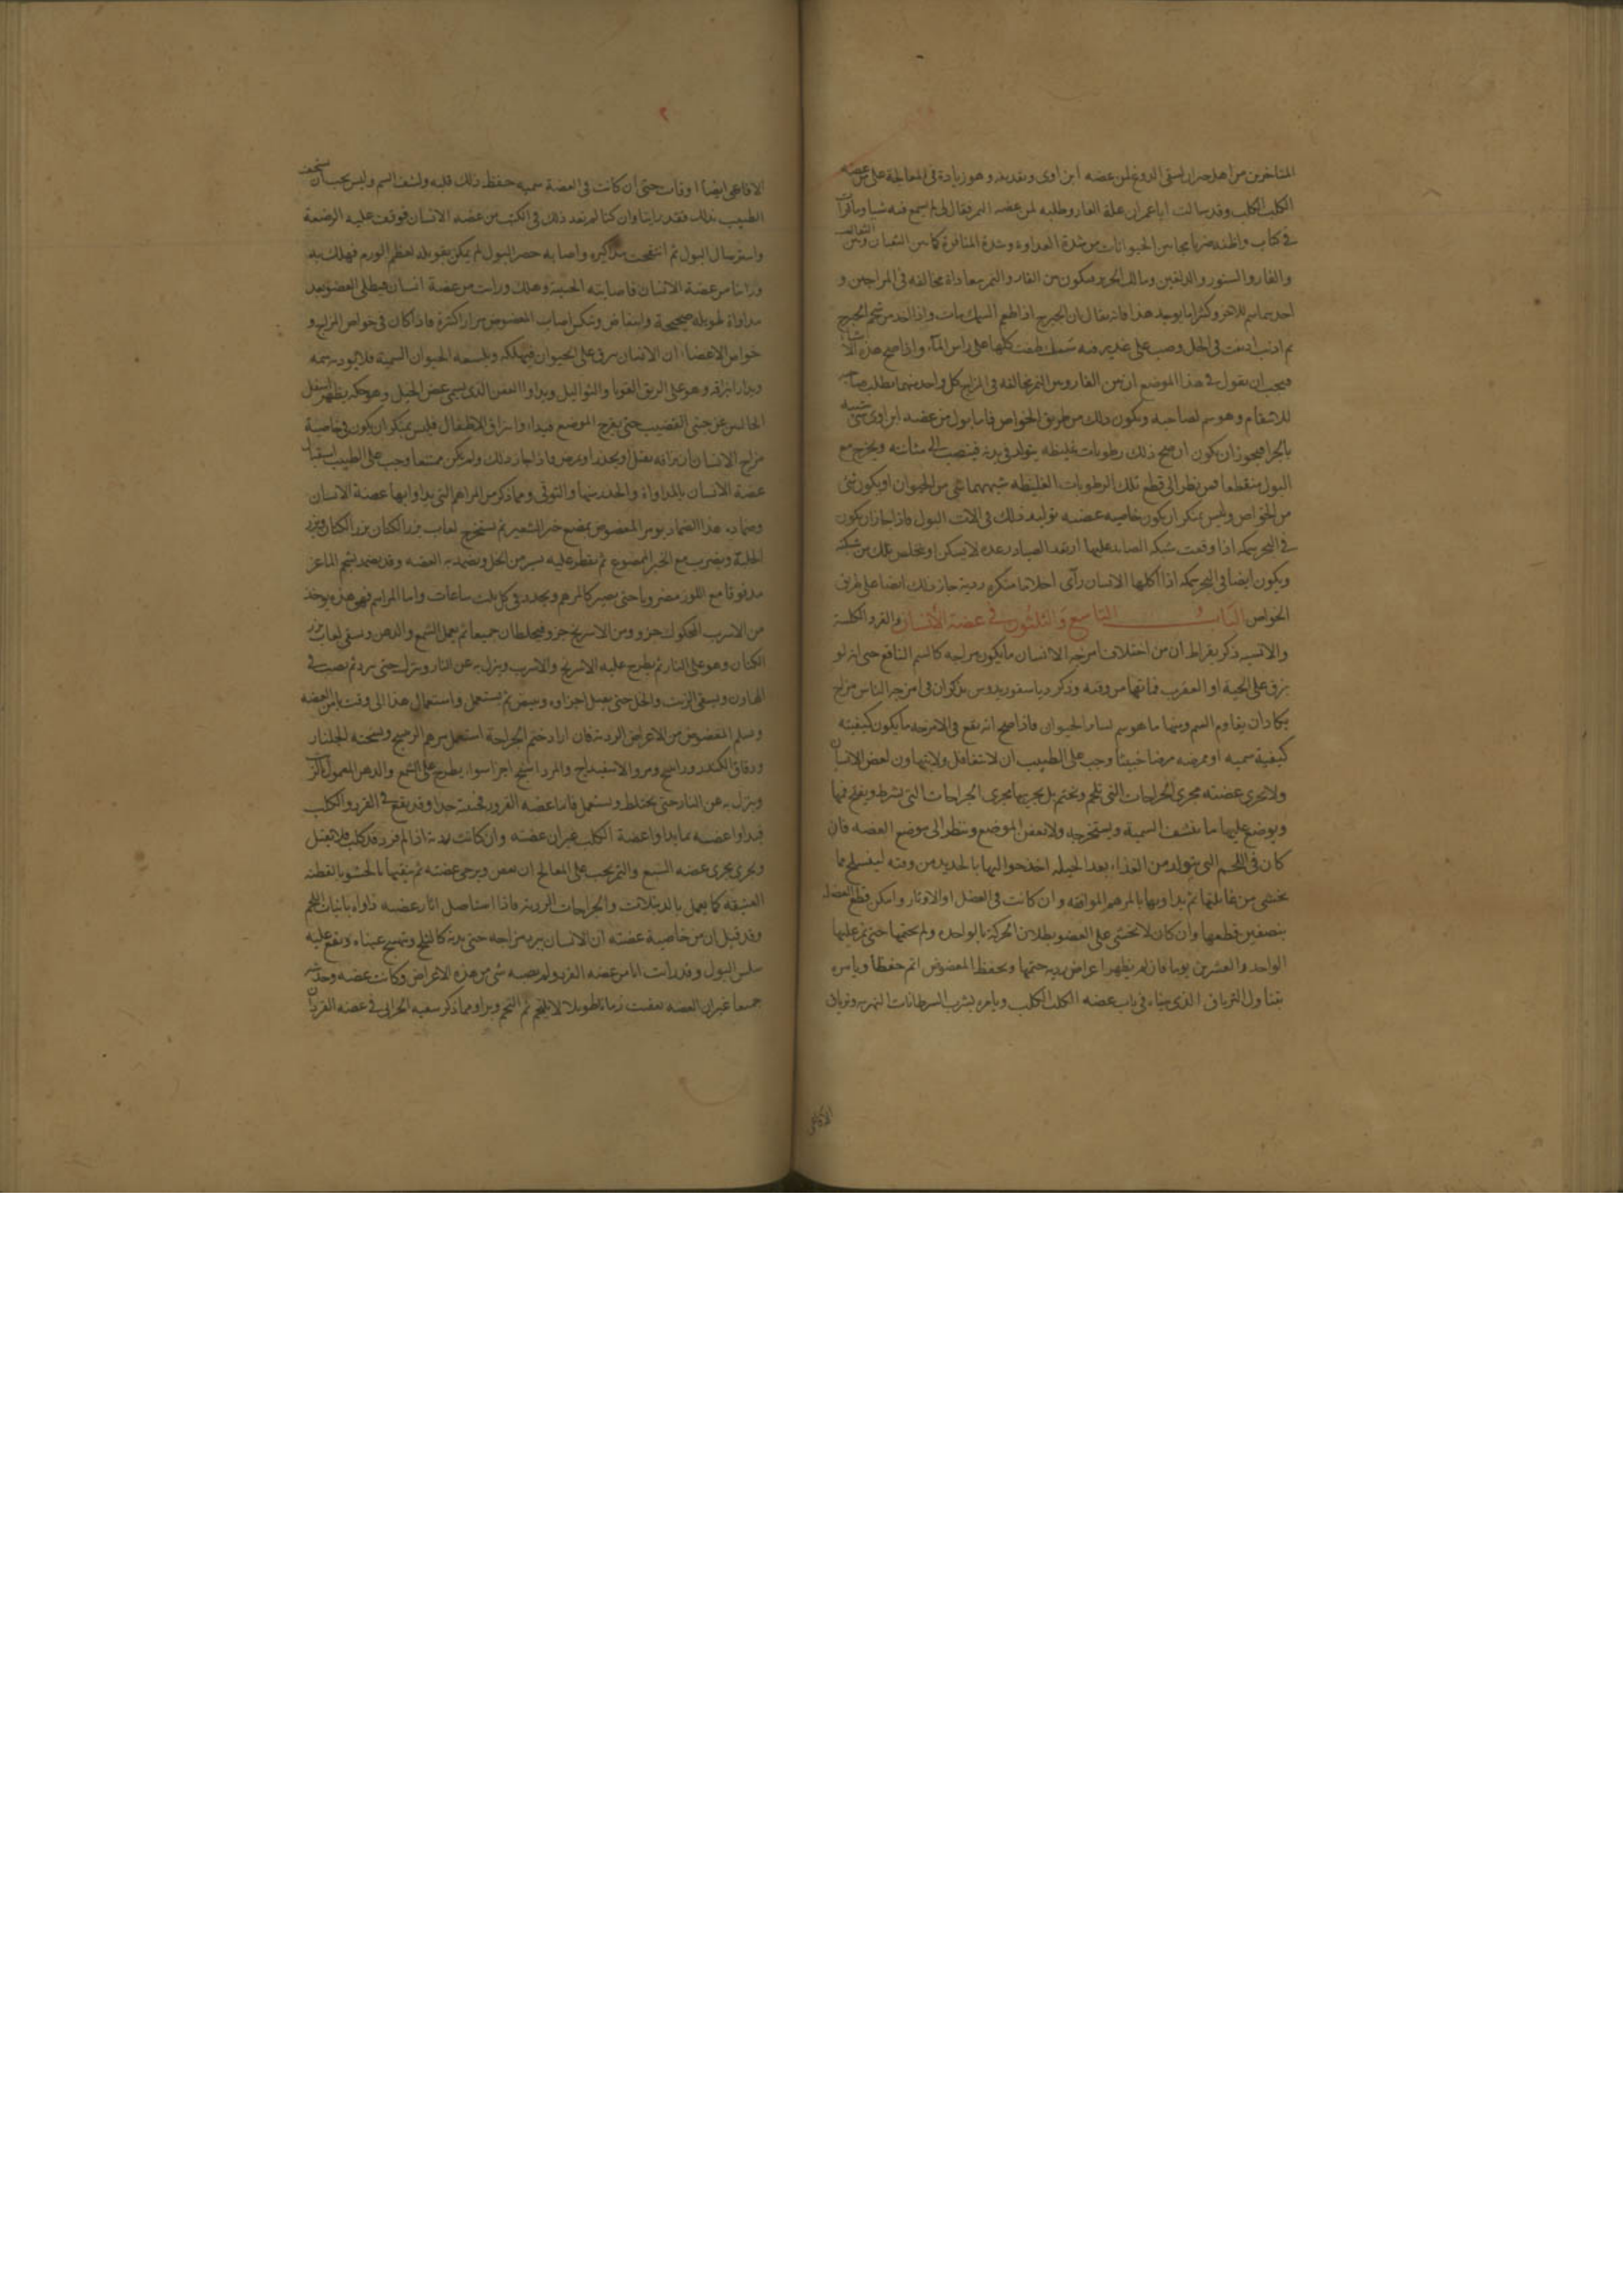 المتاخرين من اهل حران يسقى الدروغ لمن عضه ابن اوى وهو زيادة فى المعالجة على من عضه
الكلب الكلب وقد سالت ابا عمران علة الفار وطلبه لمن عضه النمر فقال لى لم اسمع فيه شيا وما قرات
فى كتاب واظنه ضربا مما بين الحيوانات من شدة العداوة وشدة المنافرة كما بين الثعبان و
والفار والسنور و فيكون بين الفار والنمر معاداة مخالفه فى المزاجين و
احدهما سم للاخر وكثيرا ما يوجد هذا فانه يقال ان اذا طعم السمك مات واذا اخذ من شحم
ثم اذيب فى الخل وصب على غدير فيه سمك طفت كلها على راس الماء واذا صح هذه الا
فيجب ان نقول فى هذا الموضع ان بين الفار وبين النمر مخالفه فى المزاج كل واحد منهما يطلب صاحبه
للانتقام وهو سم لصاحبه ويكون ذلك من طريق الخواص فاما بول من عضه ابن اوى شى شبيه
بالجرا فيجوز ان يكون ان صح ذلك رطوبات غليظه يتولد فى بدنه فينصب الى مثانته ويخرج مع
البول منقطعا فمن نظر الى قطع تلك الرطوبات الغليظه شبهها بشى من الحيوان او يكون شى
من الخواص وليس بمنكر ان يكون خاصيه عضه توليد ذلك فى الات البول فاذا جاز ان يكون
فى البحر سمكه اذا وقعت شبكه الصايد عليها ارتعد الصياد رعده لا يسكن او يتخلص تلك من شبكته
ويكون ايضا فى البحر سمكه اذا اكلها الانسان رآى احلاما منكره رديه جاز ذلك ايضا على طريق
الخواص الباب التاسع والثلثون فى عضة الانسان والقرد الكلبة
والانسيه ذكر بقراط ان من اختلاف امزجه الانسان ما يكون مزاجه كالسم الناقع حتى انه لو
بزق على الحية او العقرب قتلها من وقته وذكر دياسقوريدوس يذكر ان فى امزجه الناس مزاج
يكاد ان يقاوم السم ومنها ما هو سم لساير الحيوان فاذا صح انه يقع فى الامزجه ما يكون كيفيته
كيفية سميه او ممرضه مرضا خبيثا وجب على الطبيب ان لا يتغافل ولا يتهاون لعض الانسان
ولا يجرى عضته مجرى الجراحات التى تلحم وتختم بل يجريها مجرى الجراحات التى يشرط ويفتح فمها
ويوضع عليها ما ينشف السمية ويستخرجه ولا يعفن الموضع وينظر الى موضع العضه فان
كان فى اللحم التى يتولد من الغذاء بعد الحيله اليها بالحديد من وقته ليفسلخ مما
يخشى من غايلتها ثم يداويها بالمرهم الموافقه وان كانت فى العضل او الاوتار وامكن قطع العضل
بنصفين قطعها وان كان لا يخشى على العضو بطلان الحركة بالواحده ولم يختمها حتى تمر عليها
الواحد والعشرين يوما فان لم يظهر اعراض رديه ختمها ويحفظ المعضوض اتم حفظا ويامره
بتناول الترياق الذى بيناه فى باب عضه الكلب الكلب ويامره بشرب السرطانات النهريه وترياق
الافاعى
الافاعى ايضا اوقات حتى ان كانت فى العضة سميه حفظ ذلك قلبه ونشف السم وليس يجب ان يستخف
الطبيب بذلك فقد راينا وان كنا لم نجد ذلك فى الكتب من عضه الانسان فوقعت عليه الرضعة
واسترسال البول ثم انتفخت مذاكيره واصابه حصر البول لم يمكن تبويله لعظم الورم فهلك به
وراينا من عضة الانسان فاصابته الحبيبة وهلك ورايت من عضة انسان فبطل العضو بعد
مداواة طويلة صحيحة واستفاض ويسكن اصاب المعضوض مرارا كثيرة فاذا كان فى خواص المزاج و
خواص الاعضاء ان الانسان يبزق على الحيوان فيهلكه ويلسعه الحيوان السمية فلا يوذيه سمه
ويداوا ببزاقه وهو على الريق القوبا والثواليل ويداوا العفن الذى يسمى عض الخيل وهو حكه يظهر اسفل
الحالبين عن جنبى القضيب حتى يقرح الموضع فيداوا ببزاق الاطفال فليس بمنكر ان يكون فى خاصية
مزاج الانسان ان بزاقه يقتل او يخدر او يمرض فاذا جاز ذلك ولم يكن ممتنعا وجب على الطبيب استقبال
عضة الانسان بالمداواة والحذر منها والتوقى ومما ذكر من المراهم التى يداوا بها عضة الانسان
وضماده هذا الضماد يومر المعضوض بمضغ خبز الشعير ثم يستخرج لعاب بزر الكتان وبزر
الحلبة ويضرب مع الخبز الممضوغ ثم يقطر عليه يسير من الخل ويضمد به العضه وقد يضمد بشحم الماعز
مدقوقا مع اللوز مضروبا حتى يصير كالمرهم ويجدد فى كل ثلث ساعات واما المراهم فهو هذه يوخذ
من الاسرب المحكوك جزو ومن الاسرنج جزو فيخلطان جميعا ثم يحل الشمع والدهن ويسقى لعاب بزر
الكتان وهو على النار ثم يطرح عليه الاسرنج والاسرب وينزل به عن النار ويترك حتى يبرد ثم يصب فى
الهاون ويسقى الزيت والخل حتى يقبل اجزاوه ويبيض ثم يستعمل واستعمال هذا الى وقت يامن العضه
ويسلم المعضوض من الاعراض الرديه فان اراد ختم الجراحة استعمل مرهم ونسخته الجلنار
ودقاق الكندر ومر والاسفيداج والمرداسنج اجزا سوا يطرح على الشمع والدهن المعمول
وينزل به عن النار حتى يختلط ويستعمل فاما عضه القرود فخبيثة جدا وقد يقع فى القرد والكلب
فيداوا عضه بما يداوا عضة الكلب غير ان عضته وان كانت رديه اذا لم قرد قد كلب فلا يقتل
ويجرى مجرى عضه السبع والنمر يجب على المعالج ان يعفن ويرخى عضته ثم ينقيها بالحشو بالقطنه
العتيقة كما يعمل بالدبيلات والجراحات الرديه فاذا استاصل اثار عضه داواه بانبات اللحم
وقد قيل ان من خاصية عضته ان الانسان يبرد مزاجه حتى بدنه كالثلج وتهيج عيناه ويقع عليه
سلس البول وقد رايت انا من عضه القرد ولم يصبه شى من هذه الاعراض وكانت عضه وحشيه
جميعا غير ان العضه تعفنت زمانا طويلا لا يلتحم ثم التحم وبرا ومما ذكر سعيه الحرانى فى عضه القرد ان